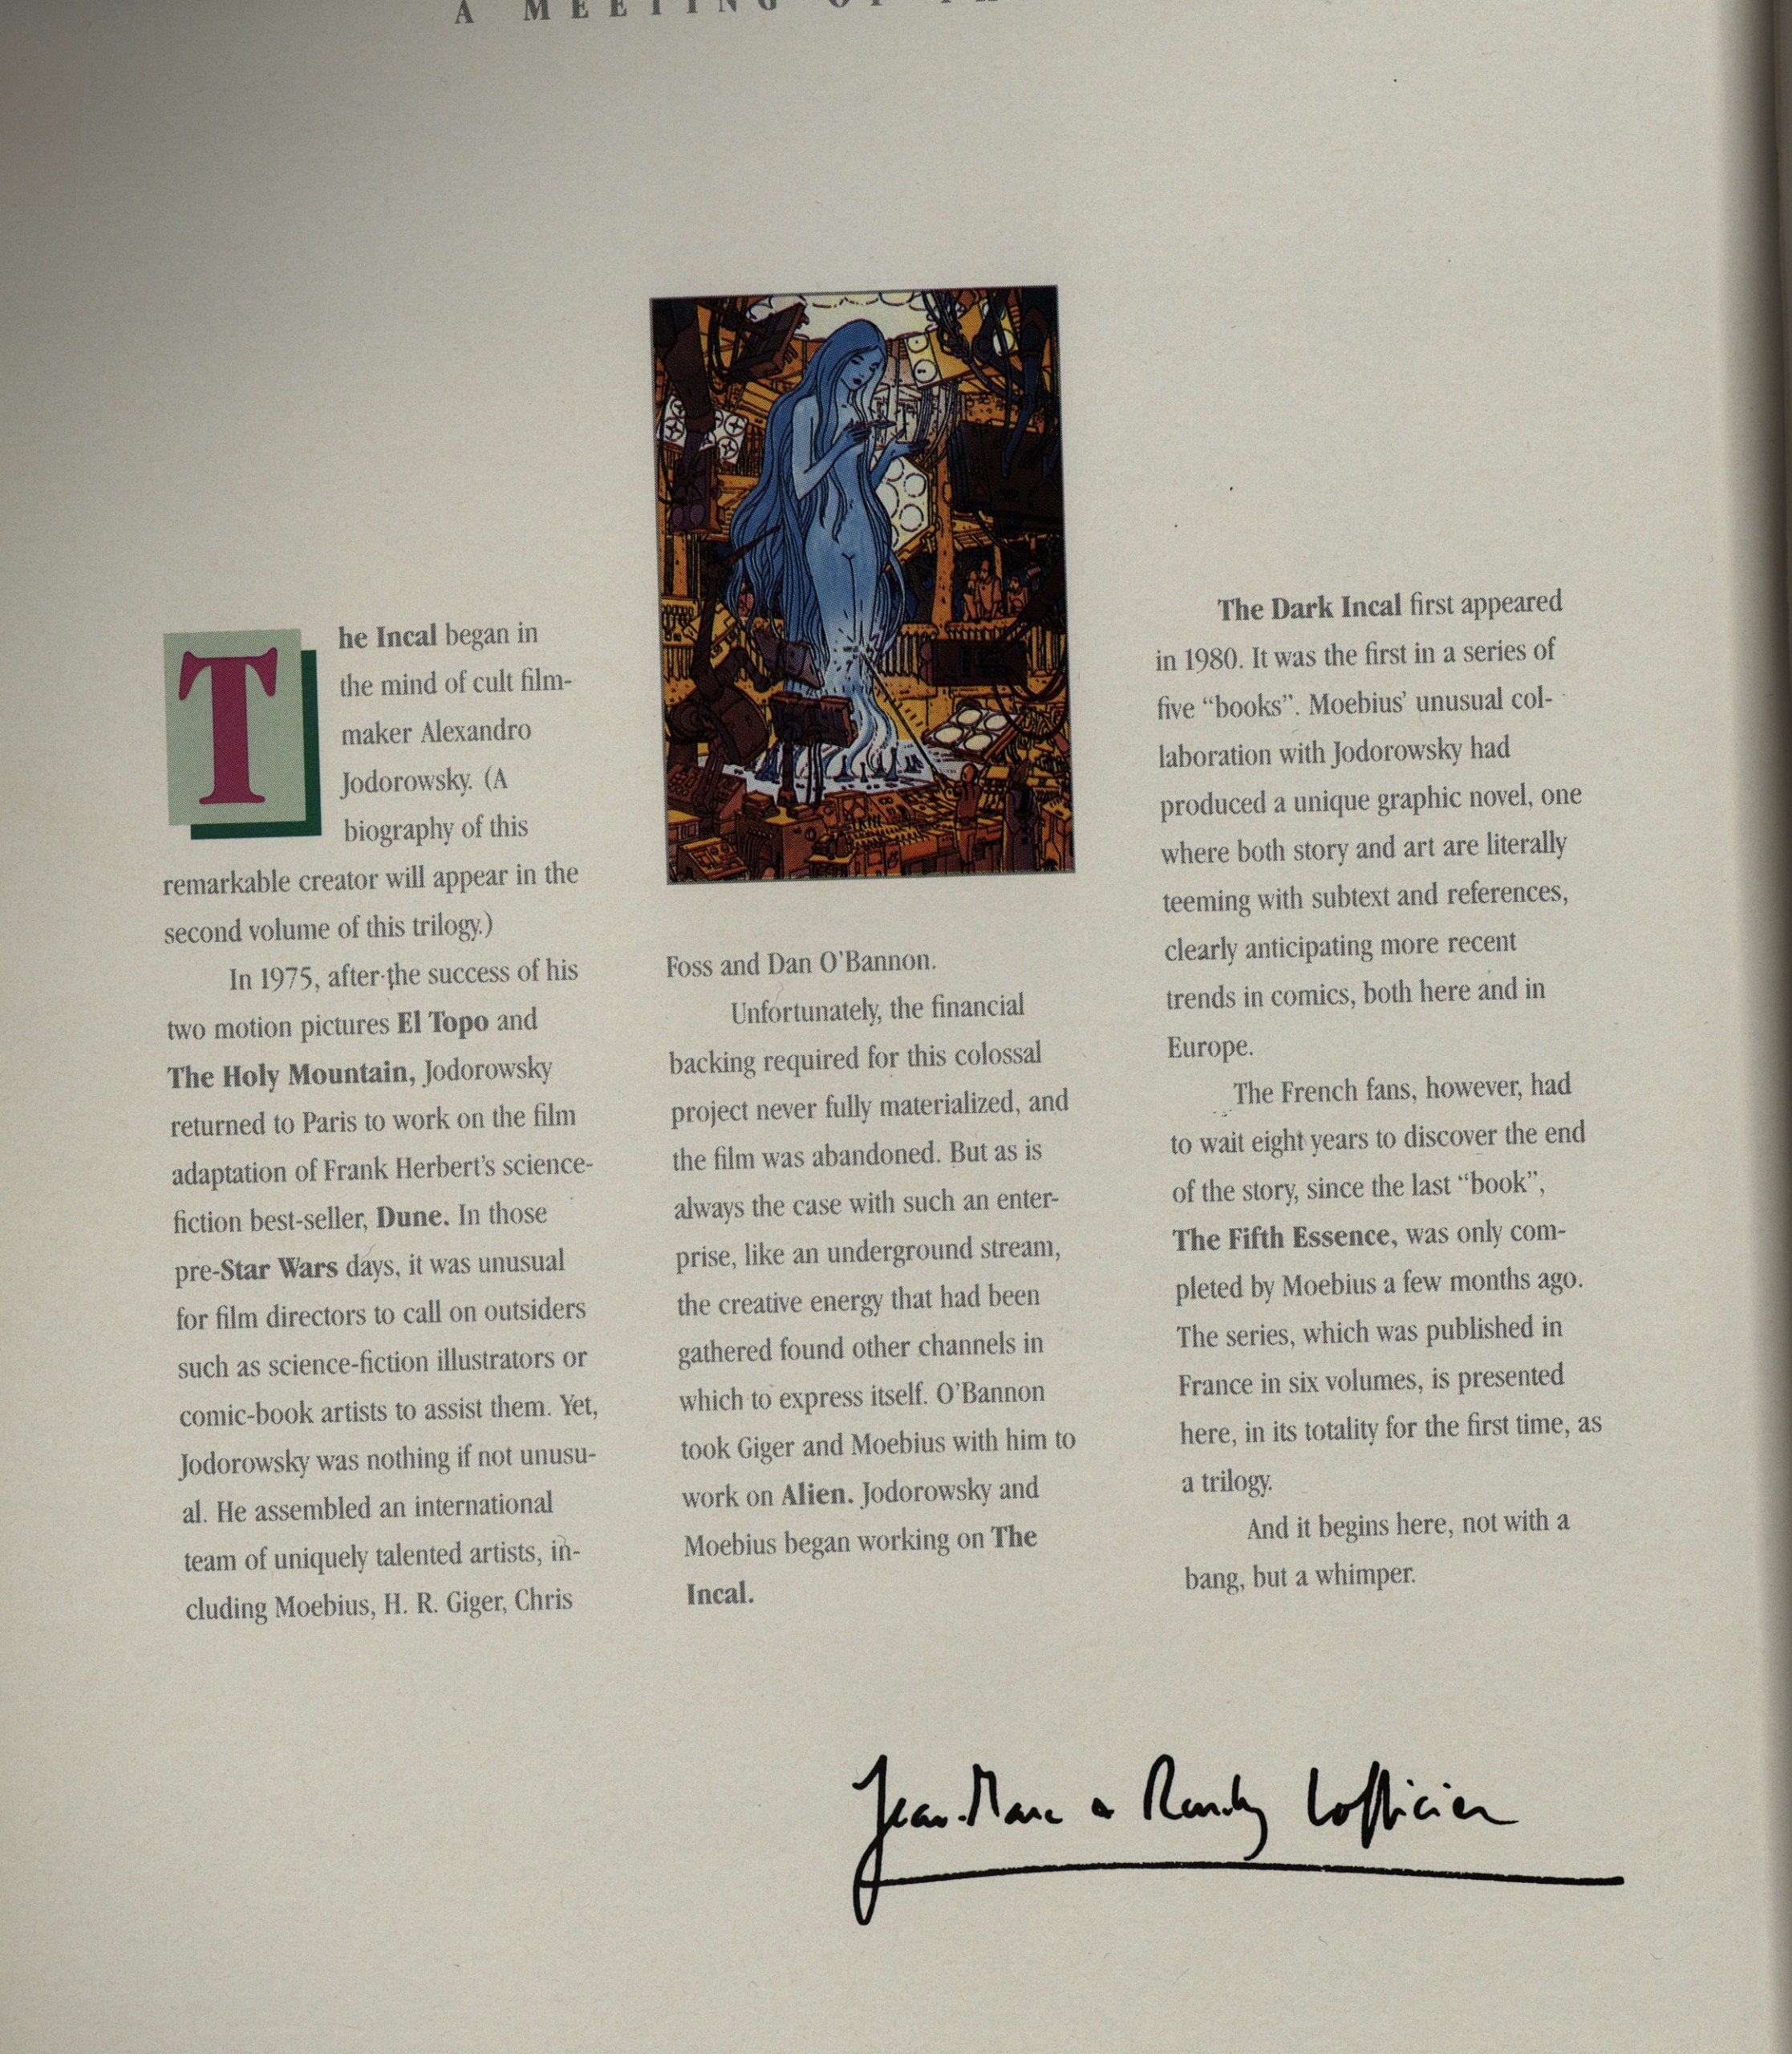 A MEETING OF
The Incal began in
the mind of cult film-
maker Alexandro
Jodorowsky. (A
biography of this
remarkable creator will appear in the
second volume of this trilogy.)
In 1975, after the success of his
two motion pictures El Topo and
The Holy Mountain, Jodorowsky
returned to Paris to work on the film
adaptation of Frank Herbert's science-
fiction best-seller, Dune. In those
pre-Star Wars days, it was unusual
for film directors to call on outsiders
such as science-fiction illustrators or
comic-book artists to assist them. Yet,
Jodorowsky was nothing if not unusu-
al. He assembled an international
team of uniquely talented artists, in-
cluding Moebius, H. R. Giger, Chris
Foss and Dan O'Bannon.
Unfortunately, the financial
backing required for this colossal
project never fully materialized, and
the film was abandoned. But as is
always the case with such an enter-
prise, like an underground stream,
the creative energy that had been
gathered found other channels in
which to express itself. O'Bannon
took Giger and Moebius with him to
work on Alien. Jodorowsky and
Moebius began working on The
Incal.
The Dark Incal first appeared
in 1980. It was the first in a series of
five “books”. Moebius' unusual col-
laboration with Jodorowsky had
produced a unique graphic novel, one
where both story and art are literally
teeming with subtext and references,
clearly anticipating more recent
trends in comics, both here and in
Europe.
The French fans, however, had
to wait eight years to discover the end
of the story, since the last “book”,
The Fifth Essence, was only com-
pleted by Moebius a few months ago.
The series, which was published in
France in six volumes, is presented
here, in its totality for the first time, as
a trilogy.
And it begins here, not with a
bang, but a whimper.
Jean-Marc & Randy Lofficier